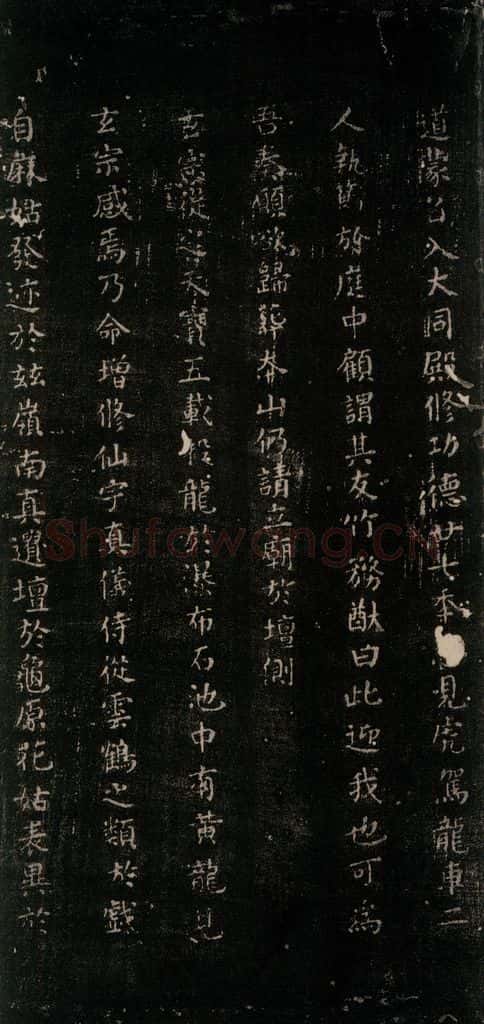 道蒙召入大同殿修功德廿七年忽見虎駕龍車二
人執節於庭中顧謂其友竹務猷曰此迎我也可為
吾奏願欲歸葬本山仍請立廟於壇側
玄宗從之天寶五載投龍於瀑布石池中有黃龍見
玄宗感焉乃命增修仙宇真儀侍從雲鶴之類於戲
自麻姑發迹於茲嶺南真遺壇於龜原花姑表異於
Shufawang.CN